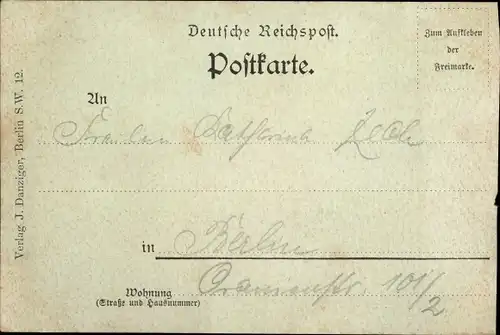 Deutsche Reichspost.
Postkarte.
Zum Aufkleben
der
Freimarke.
An
Fräulein Katharina
in Berlin
Oranienstr. 101/2
Wohnung
(Straße und Hausnummer)
Verlag J. Danziger, Berlin S.W. 12.